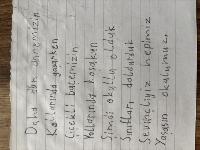 Daha dün annemizin
Kollarında yaşarken
Çiçekli bahçemizin
Yollarında koşarken
Şimdi okullu olduk
Sınıfları doldurduk
Sevinçliyiz hepimiz
Yaşasın okulumuz.